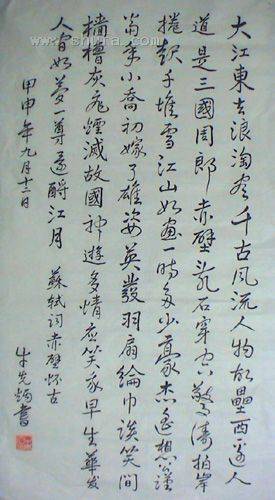 大江東去浪淘尽千古風流人物故壘西邊人
道是三國周郎赤壁乱石穿空驚濤拍岸
捲起千堆雪江山如画一時多少豪杰遙想公瑾
當年小喬初嫁了雄姿英發羽扇綸巾談笑間
檣櫓灰飛煙滅故國神遊多情應笑我早生華发
人間如夢一尊還酹江月 蘇軾詞赤壁懷古
甲申年九月十二日
書